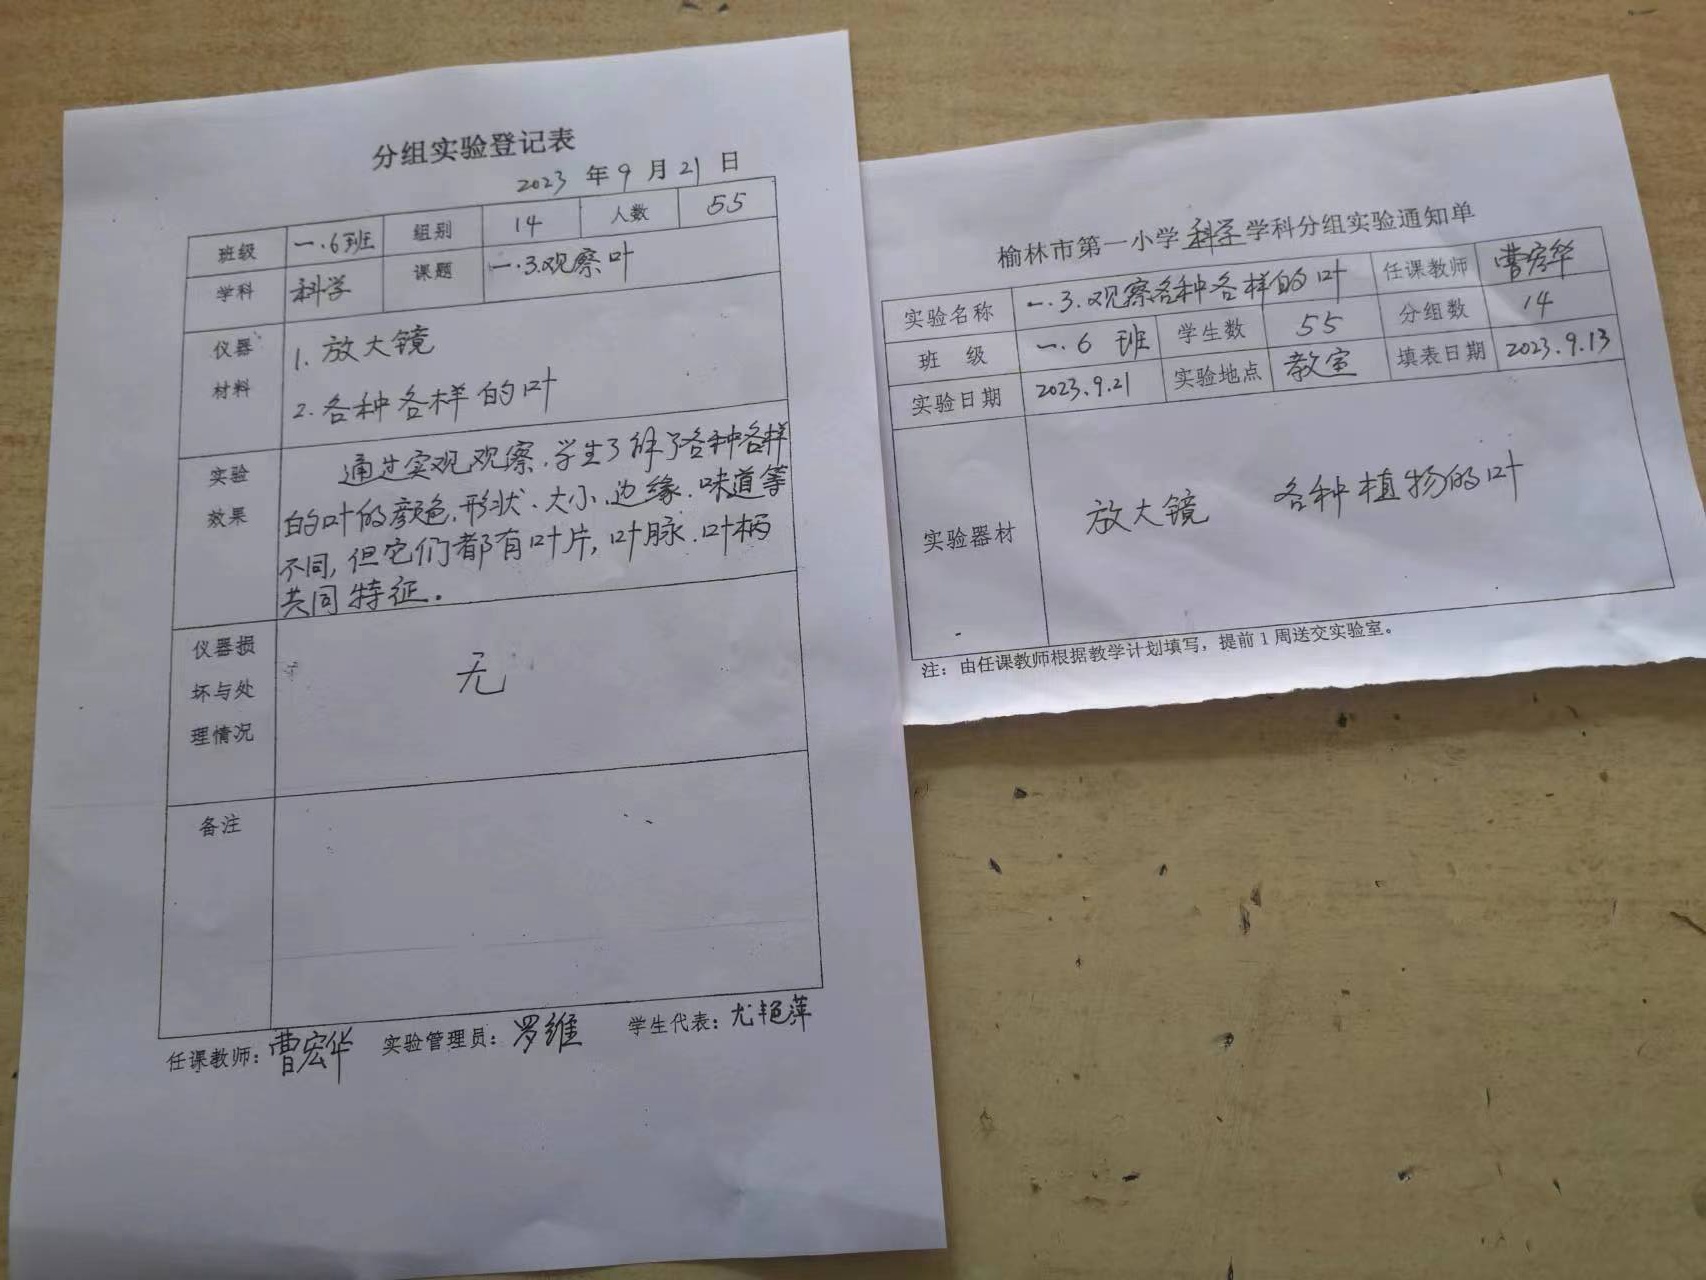 分组实验登记表
2023 年 9 月 21 日
班级 一.6班 组别 14 人数 55
学科 科学 课题 一.3.观察叶
仪器
材料
1. 放大镜
2. 各种各样的叶
实验
效果
通过实观观察.学生了解了各种各样
的叶的颜色.形状.大小.边缘.味道等
不同,但它们都有叶片,叶脉.叶柄
共同特征。
仪器损
坏与处
理情况
无
备注
任课教师:曹宏华 实验管理员:罗维 学生代表:尤艳萍
榆林市第一小学科学学科分组实验通知单
实验名称 一.3.观察各种各样的叶 任课教师 曹宏华
班 级 一.6 班 学生数 55 分组数 14
实验日期 2023.9.21 实验地点 教室 填表日期 2023.9.13
实验器材 放大镜 各种植物的叶
注:由任课教师根据教学计划填写,提前1周送交实验室。